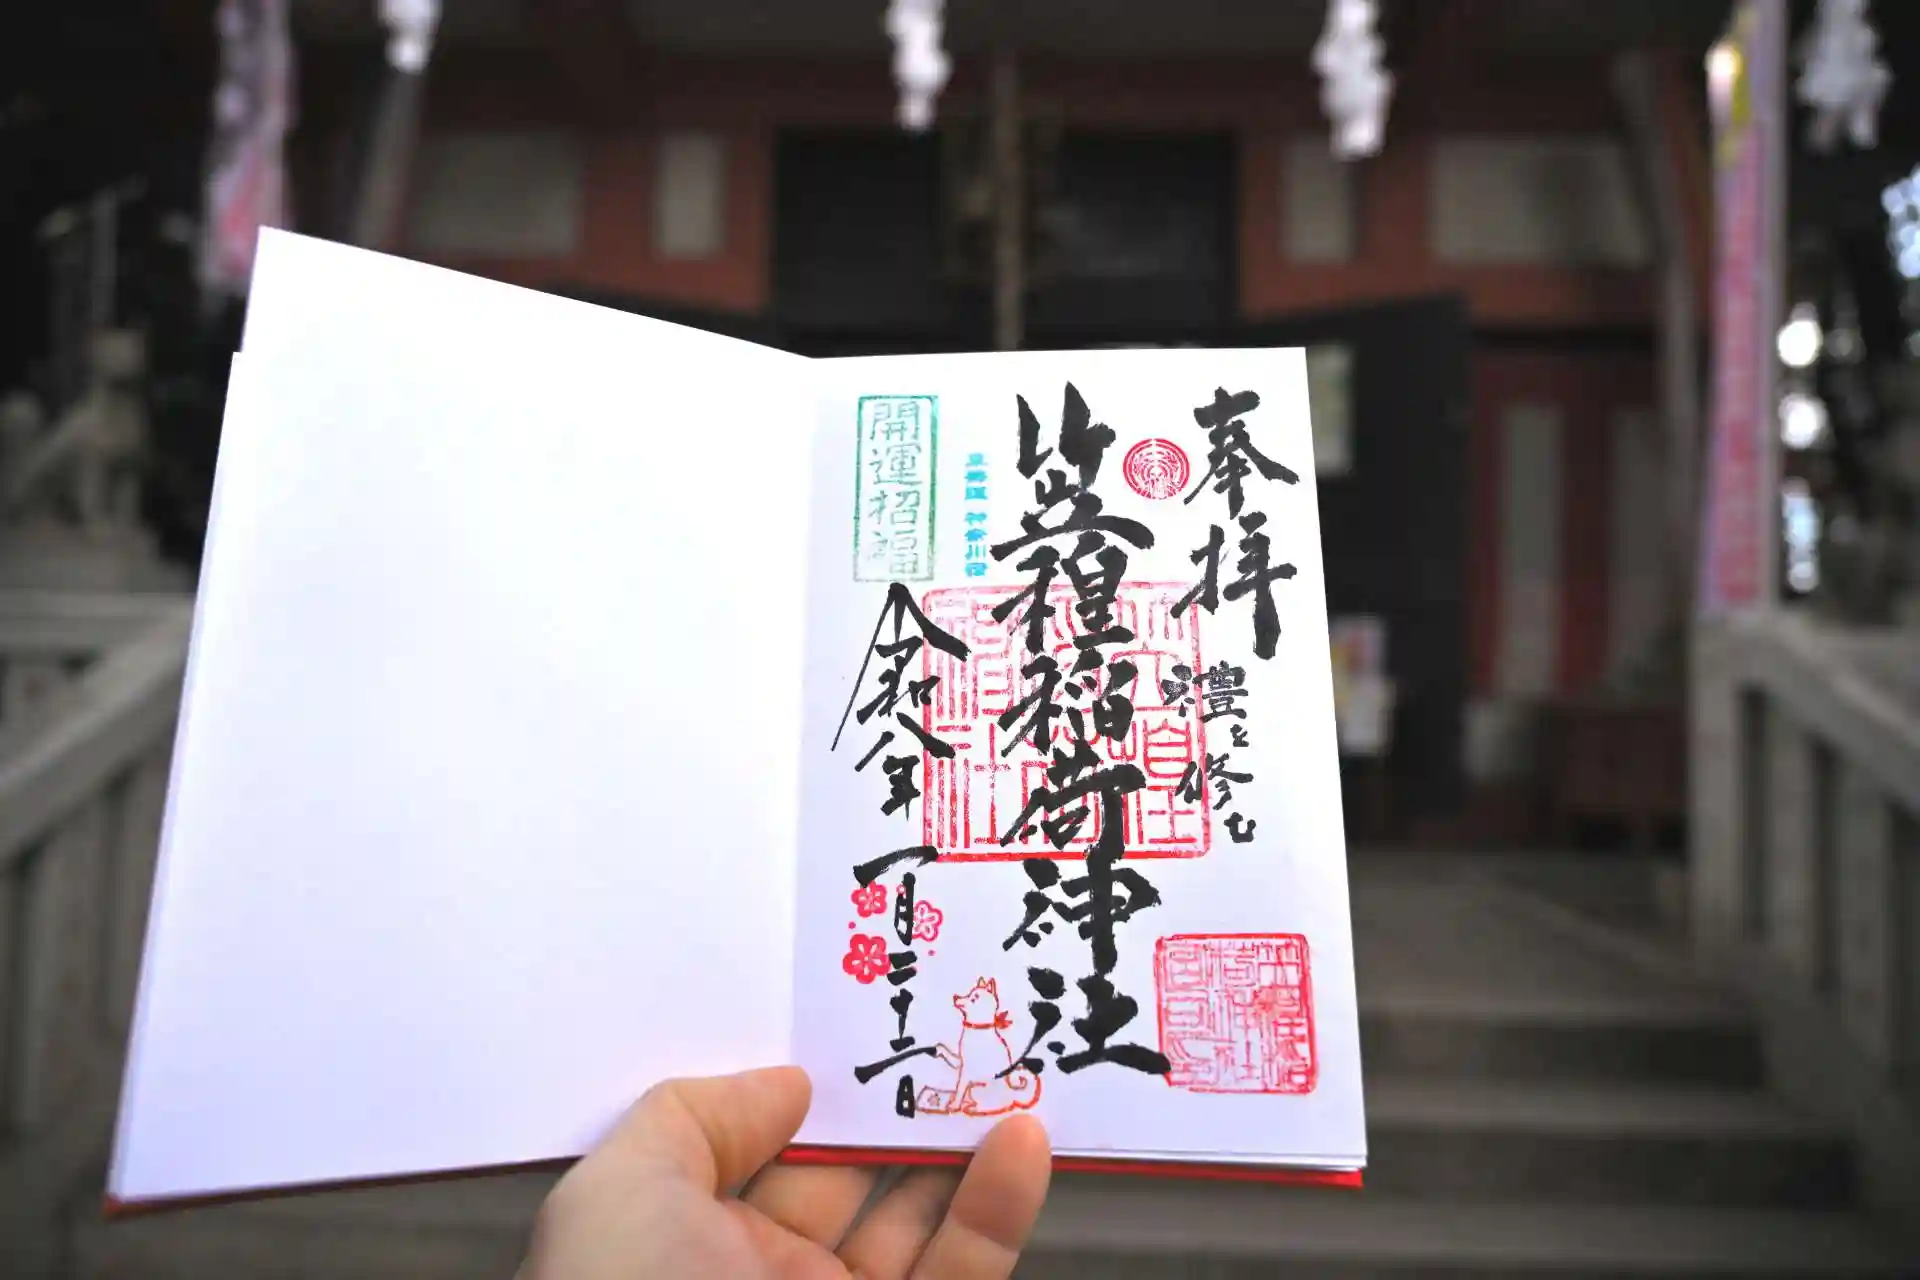 奉拝
禮を修む
笠䅣稲荷神社
東海道 神奈川宿
開運招福
令和八年 一月二十二日